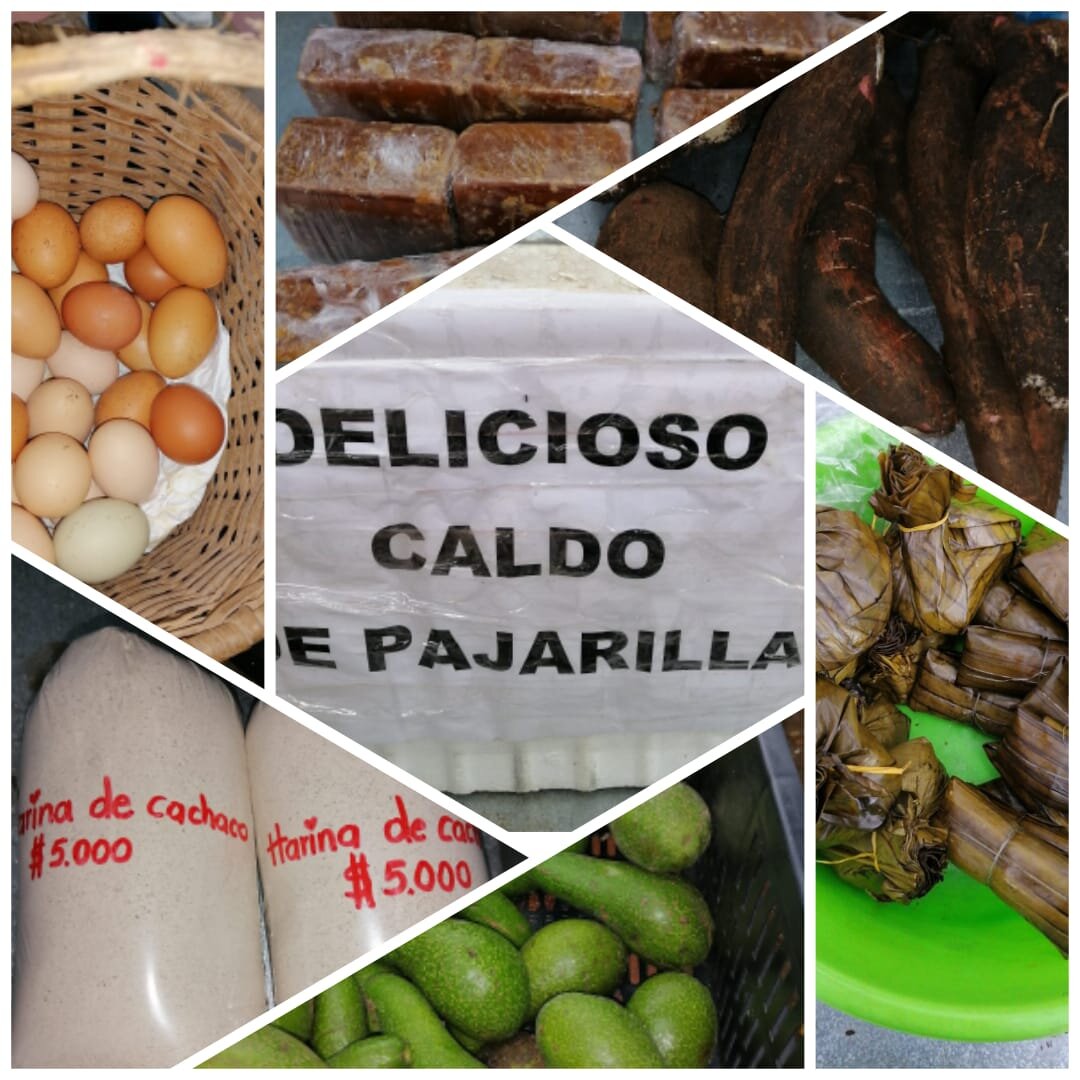 DELICIOSO
CALDO
DE PAJARILLA
arina de cachaco
$5.000
Harina de cac
$5.000